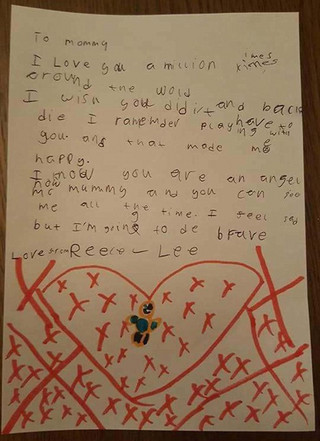 To mommy
I Love you a million times ximes
around the wold
I wish you didirt and back
die I ramemder play have to
you. and that mode ing with me
happy.
I now you are an angel
now mummy and you can see
me all the time. I feel sad
but I'm going to de brave
Love from Reece-Lee